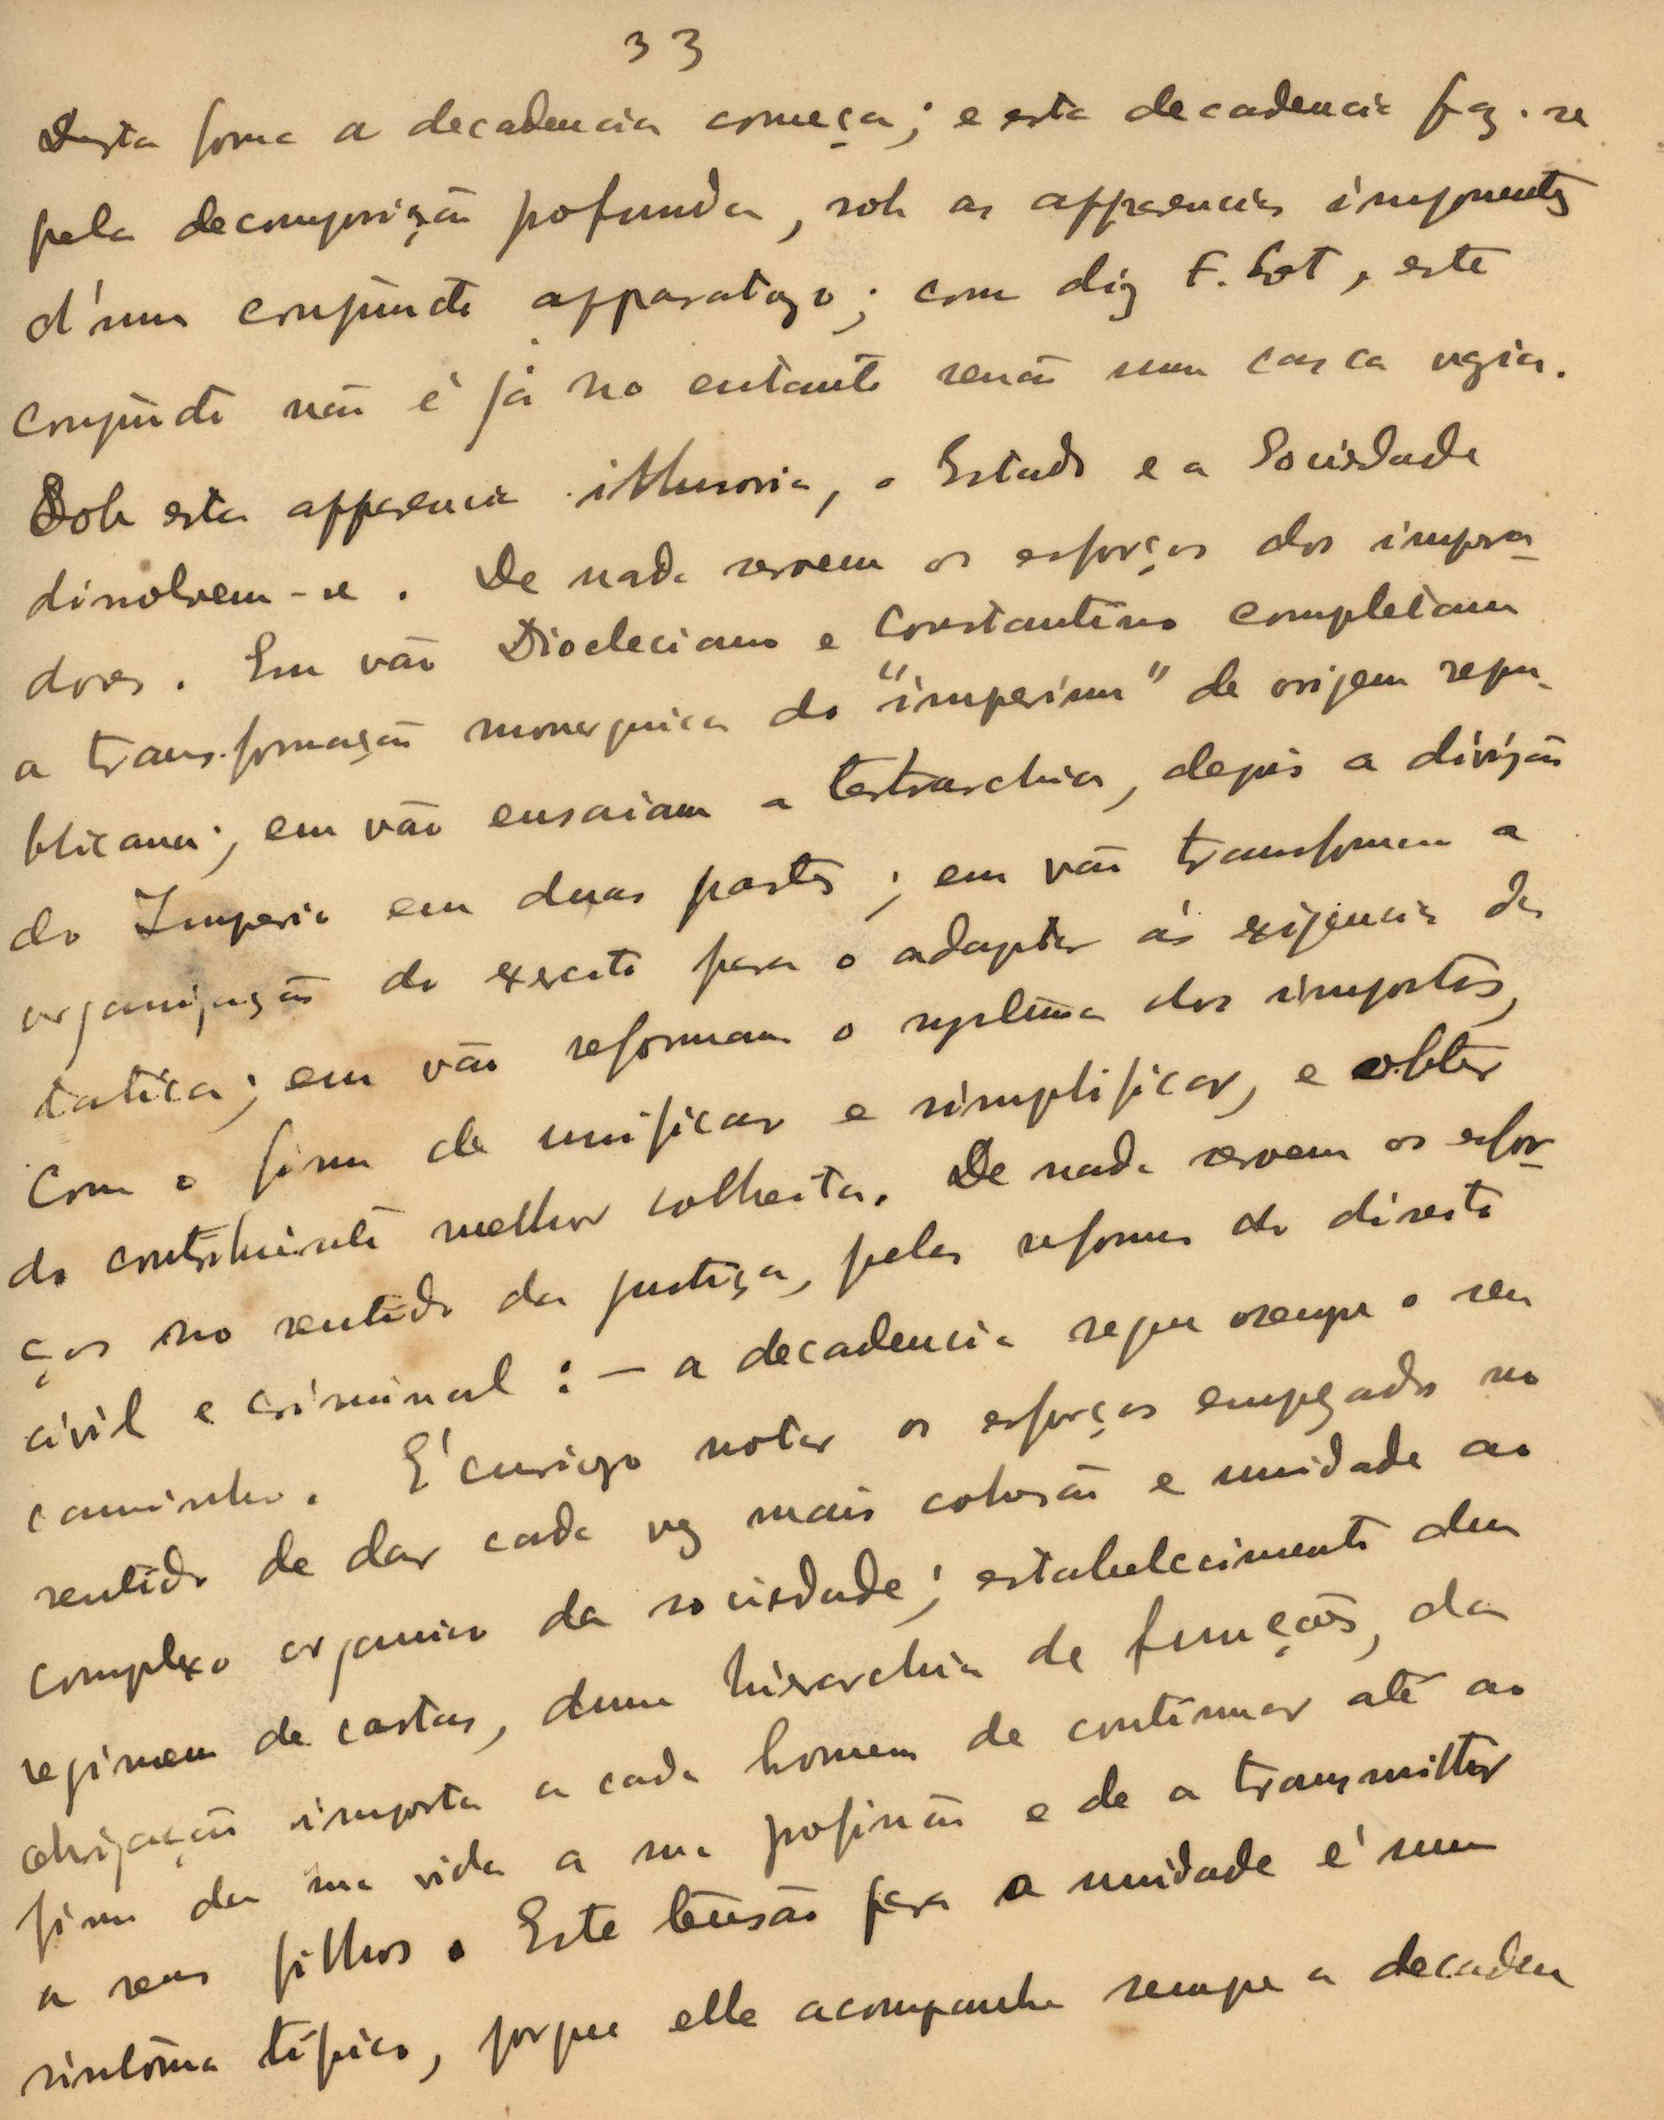 33
Desta forma a decadencia começa; e esta decadencia faz-se
pela decomposição pofunda, sob as apparencias imponentes
d'um conjuncto apparatozo; com diz F. Lot, este
conjuncto não é já no entanto senão uma casca vazia.
Sob esta apparencia illusoria, o Estado e a Sociedade
dissolvem-se. De nada servem os esforços dos impera-
dores. Em vão Diocleciano e Constantino completam
a transformação monarquica do "imperium" de origem repu-
blicana; em vão ensaiam a tetrarchia, depois a divizão
do Imperio em duas partes; em vão transformam a
organização do exercito para o adaptar ás exigencias da
tatica; em vão reformam o systema dos impostos,
com o fim de unificar e simplificar, e obter
do contribuinte melhor colheita. De nada servem os esfor-
ços no sentido da justiça, pelas reformas do direito
civil e criminal: — a decadencia segue sempre o seu
caminho. É curiozo notar os esforços empregados no
sentido de dar cada vez mais cohesão e unidade ao
complexo organico da sociedade; estabelecimento dum
regimem de castas, duma hierarchia de funções, da
obrigação imposta a cada homem de continuar até ao
fim da sua vida a sua profissão e de a transmittir
a seus filhos. Este tensão para a unidade é um
sintôma típico, porque elle acompanha sempre a decaden